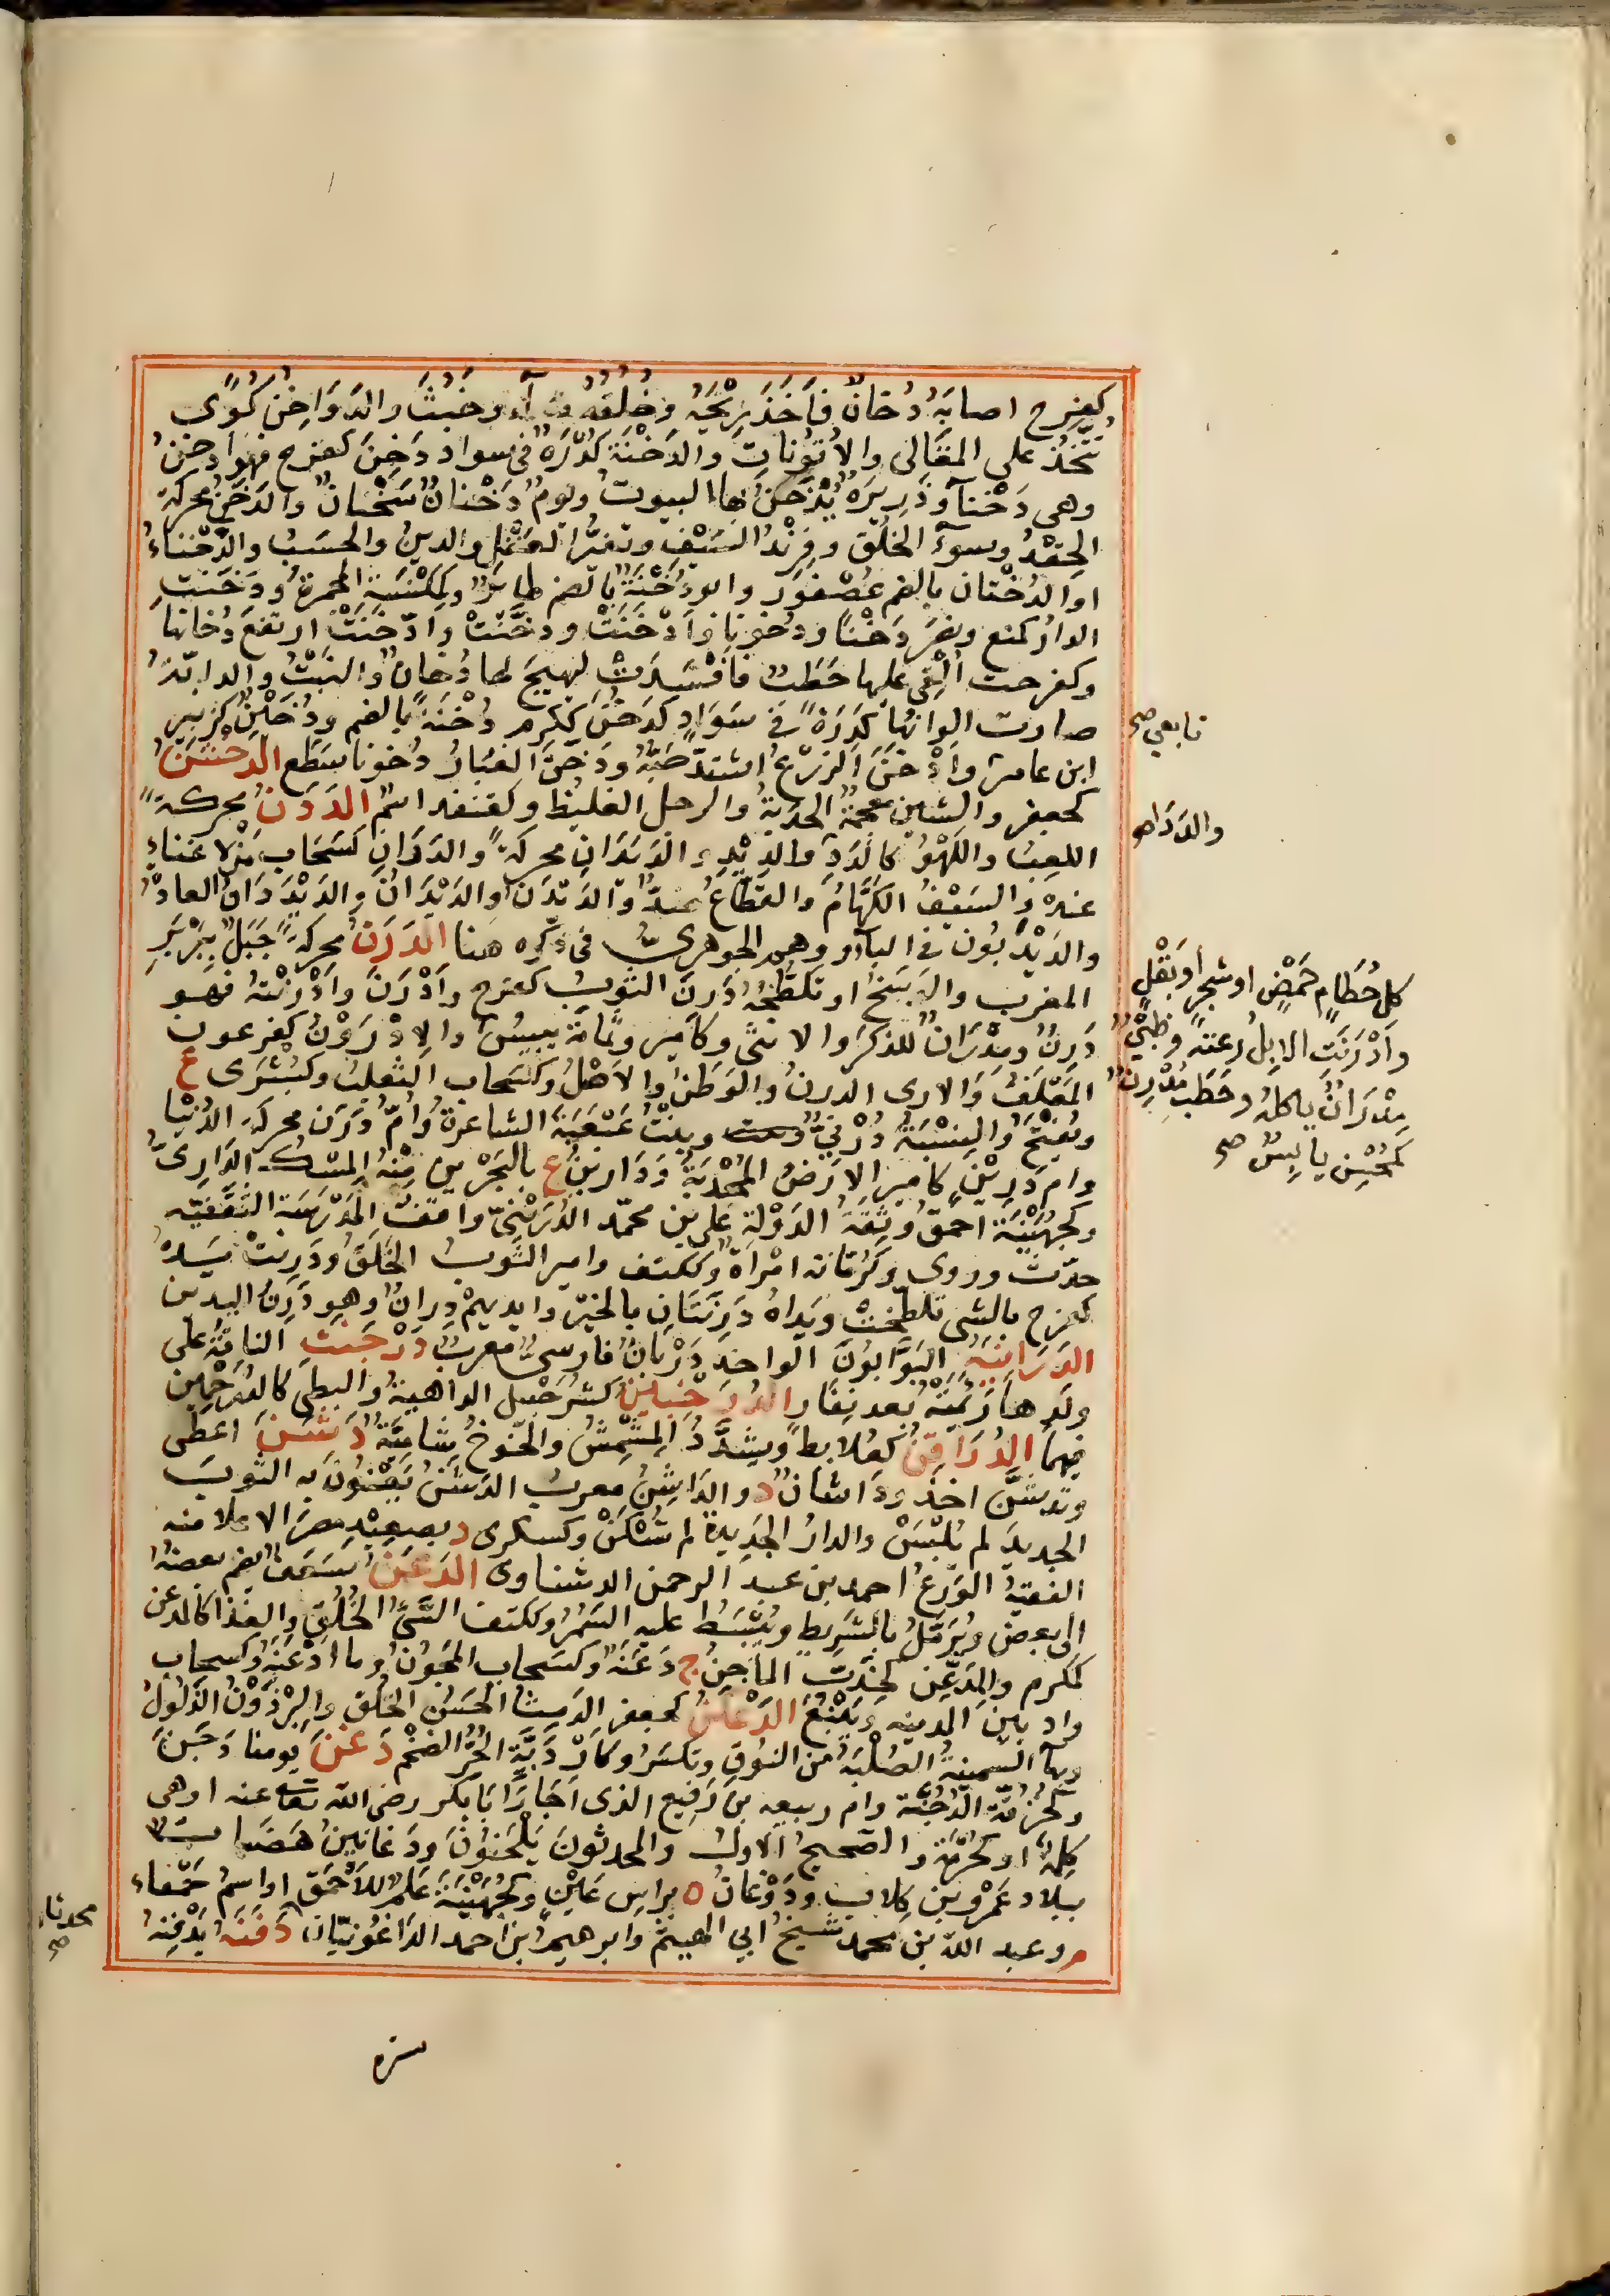 كفرح اصابه دُخانٌ فأخَذ رِيْحَه وخُلُقُه سآء وخَبُثَ والدَّوَاخِنُ كُوًى
تُتَّخَذُ على المقَالى والاَتُوْنَاتِ والدَّخْنَة كُدْرَةٌ فى سواد دَخِنَ كفرح فهو ادخنُ
وهى دَخْنآ وذَرِيرَةٌ يُدْخَنُ بها البيوتُ ويومٌ دَخْنانٌ سَخْنانٌ والدَّخَنُ محركةً
الحِقْدُ وسوءُ الخُلُق وفِرِنْدُ السَّيْفِ وتغيُّر العَقْلِ والدينُ والحَسَبُ والدَّخْنَاءُ
او الدُّخْنان بالضم عُصْفورٌ وابو دُخْنَةَ بالضم طائرٌ وكمكْنَسَة المِجْمَرةُ ودَخَنَتِ
الدارُ كمنع ونصَرَ دَخْنًا ودُخونا وأدْخَنَتْ ودخَّنَتْ وادّخَنَتْ ارتفعَ دُخانها
وكفرحت اُلْقِىَ عليها حَطَبٌ فأفْسِدَتْ ليهيجَ لها دُخانٌ والنَّبْتُ والدابّةُ
صارت الوانها كَدَرَةً فى سَوَادٍ كدَخُنَ ككرم دُخْنَةً بالضم ودُخَيْنٌ كزبير
ابن عامر وادْخَنَ الزرْعُ اشتدّ حَبُّهُ ودَخَنَ الغبارُ دُخونا سَطَع الدَّخْشَنُ
كجعفر والشين معجمةٌ الحَدَبةُ والرجل الغليظ وكقنفذ اسمٌ الدَّدَنُ محركةً
اللعِبُ واللَّهْوُ كالدَّدِ والدَّيْدِ والدَّيَدَانِ محركةً والدَّدَانِ كسَحَابٍ مَنْ لا غناءَ
عنده والسَيْفُ الكَهَّامُ والقطّاعُ ضدٌّ والدّيْدَنُ والدَّيْدَانُ والدَّيْدَدَانُ العادةُ
والدَّيْدَبُون فى البآء ووهم الجوهرىُّ فى ذكره هنا الدَّرَنُ محركةً جَبَلٌ بِبَرْبَرِ
المغرب والوَسَخُ او تَلَطُّخُهُ دَرِنَ الثوبُ كفرح وأدْرَنَ وأدْرَنْتُهُ فهو
دَرِنٌ ومِدْرَانٌ للذكَر والانثى وكأميرٍ وثُمَامَةٍ يبيسُ والإدْرَوْنُ كفِرعون
المَعْلَفُ والآرى الدرنُ والوَطَنُ والاَصْلُ وكسَحاب الثعلبُ وكبُشْرَى ع
ويُفْتَحُ والنِّسْبَةُ دُرْنىٌّ وبنْتُ عَبْعَبَةَ الشاعرةُ وأمّ دَرَن محركةً الدُّنْيا
وام دَرِيْنٍ كامير الارضُ المُجْدِبةُ ودَارِينُ ع بالبحْرين منْهُ المِسْكُ الدَّارِىُّ
وكجُهَيْنَة احمَقُ وثِقَةُ الدَّوْلَةِ على بن محمّد الدُّرَيْنىّ واقفُ المَدْرَسَة الثقَفيّه
حدّث وروى وكرُمّانة امْرأةٌ وككتف وامير الثَّوبُ الخَلَقُ ودَرِنتْ يَدهُ
كفرح بالشىِ تلطّخَتْ ويَدَاهُ دَرِنَتَانِ بالخيْر وايديهمْ دِرانٌ وهو دَرِنُ اليدين
الدَّرَابِنَةُ البَوَّابُونَ الواحد دَرْبَانٌ فارسىٌّ معربٌ دَرْجَنَتِ الناقةُ على
ولَدِهَا رَئِمَتْهُ بعد نِفَار الدُّرَخْبِينُ كشُرَحْبيل الداهيةُ والبطى كالدُّرَخْمِين
فيهما الدُّرَاقِنُ كعُلابط ويشدّدُ المِشْمِشُ والخَوخُ شاميّةٌ دَشَنَ اعطى
وتدشَّنَ اخذ وداشانُ د والدَّاشِنُ معربُ الدَشَنْ يَعْنُونَ به الثوبَ
الجديدَ لم يُلْبَسْ والدارُ الجَدِيدةُ لم تُسْكَنْ وكسكرى د بصعيدِ مصرَ الاعلا منه
الفقيهُ الوَرِعُ احمد بن عبد الرحمن الدشناوى الدَّعَنُ سَعَفٌ يُضم بعضهُ
الى بعض ويُرَمَّلُ بالشَّرِيطِ ويُبْسَطُ عليه التَمْرُ وككتف السَّئُ الخُلُقِ والغِذَا كالمدعن
كمُكْرم والمِدَعِّن كمُحَدّث الماجِنُ ج دَعَنَةٌ وكسَحاب المُجُونُ وما ادْعَنَهُ وكسحاب
وادٍ بين المدينه ويَنْبُعَ الدَّعْكَنُ كجعفر الدَمِثُ الحَسَنُ الخُلُق والبِرْذَوْنُ الذَّلُولُ
وبهآ السمينةُ الصُّلْبَةُ من النُوقِ وتكسَرُ وكأرّ دَبَّةِ الحِرُ الضخْم دَغَنَ يومنا دَجَنَ
وكحُزُقّة الدُّجُنَّة وام ربيعه بن رُفَيع الذى اجَارَ ابَا بكر رضى الله تعا عنه او هى
كلمة او كحُرَّمَة والصحيحُ الاول والمحدثونَ يَلْحَنُونَ ودَغَانِينُ هَضَباتٌ
ببلاد عَمْرو بن كلاب ودَوْغانُ ة براس عَيْنٍ وكجُهَيْنَةَ عَلَمٌ للأحْمَقِ او اسمُ حَمْقاء
م وعبد الله بن محمد شيخُ ابى الهيثم وابرهيمُ ابن احمد الدَّاغُونيّان دَفَنَهُ يَدْفِنهُ
تابعى صح
والدَّدَا صح
كل حُطَامٍ حَمْضٍ او شجرٍ أو بَقْلٍ
وادْرَنَتِ الابِلُ رعتهُ وظَبْىٌ
مِدْرَانٌ ياكلهُ وحَطَبٌ مُدْرِنٌ
كمُحْسِن يابِسٌ صح
محدثان صح
ستره